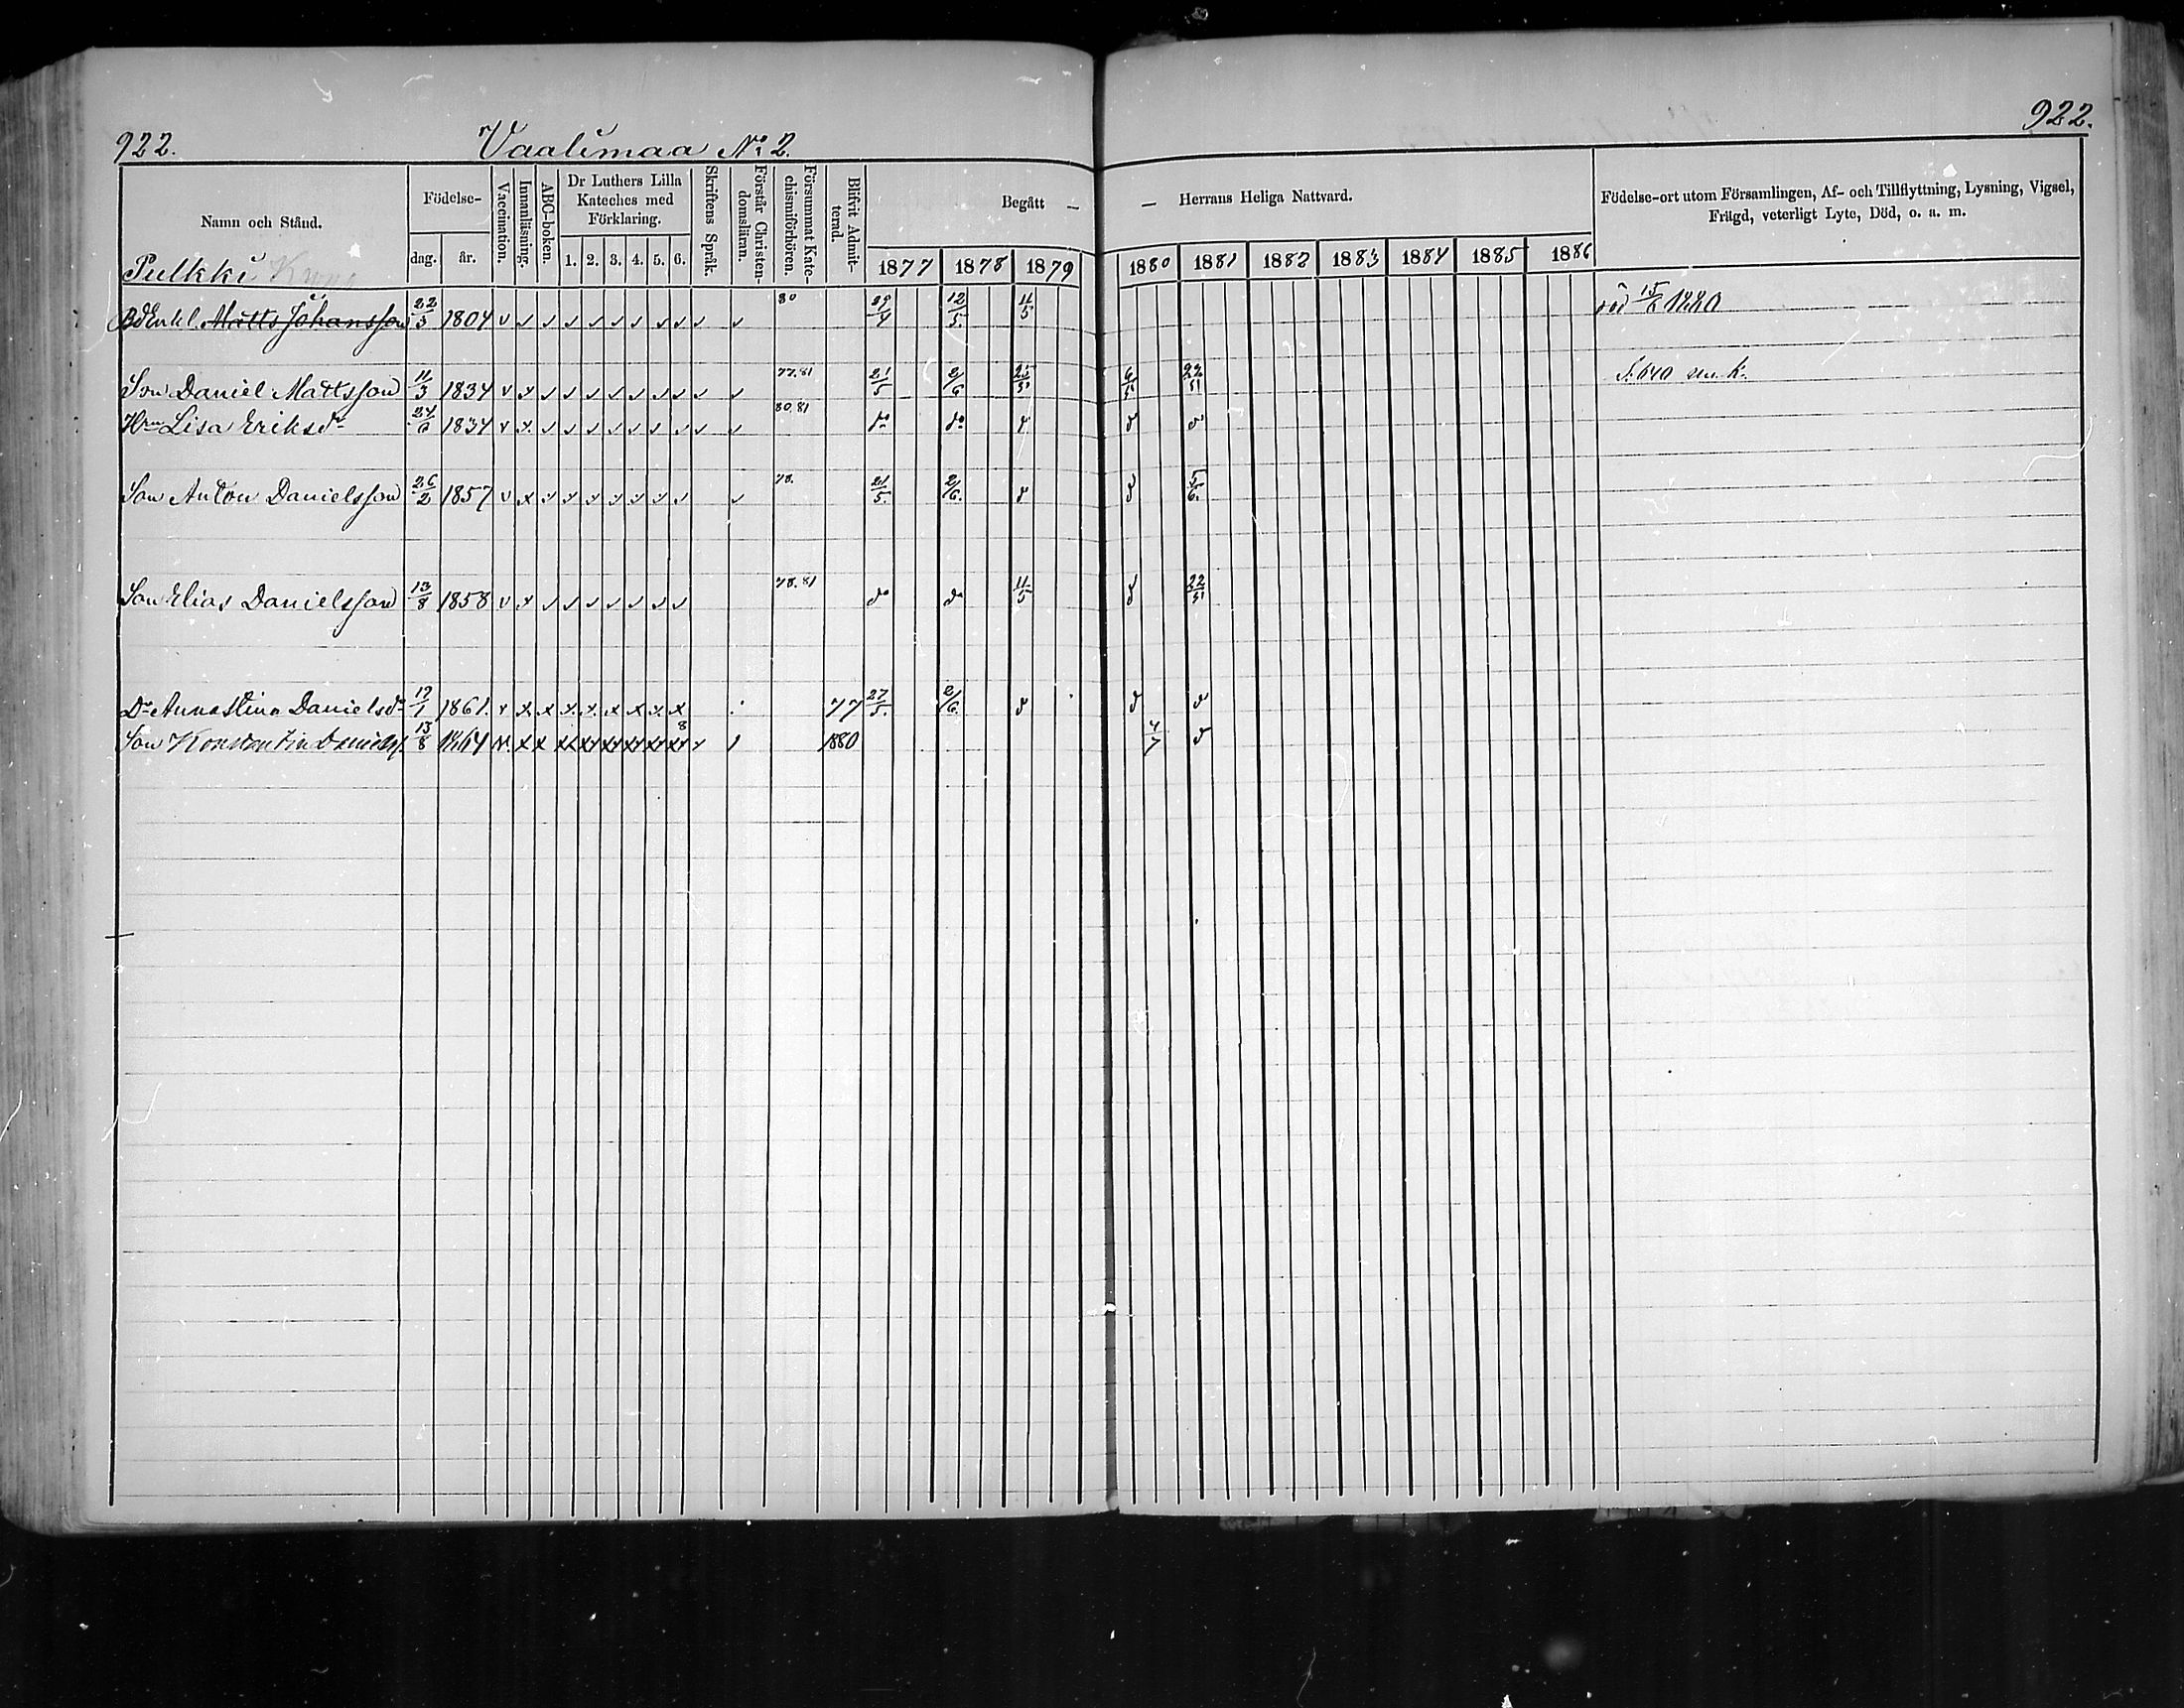 922.
Vaalimaa No 2.
922.
Namn och Stånd.
Födelse-
dag.
år.
Vaccination.
Innanläsning.
ABC-boken.
Dr Luthers Lilla
Kateches med
Förklaring.
1. 2. 3. 4. 5. 6.
Skriftens Språk.
Förstår Christen-
domsläran.
Försummat Kate-
chismiförhören.
Blifvit Admit-
terad.
Begått —
— Herrans Heliga Nattvard.
1877 1878 1879 1880 1881 1882 1883 1884 1885 1886
Födelse-ort utom Församlingen, Af- och Tillflyttning, Lysning, Vigsel,
Frägd, veterligt Lyte, Död, o. a. m.
Pulkki
Matts Johansson 22/3 1804 80 29/4 12/5. 11/5 15/6 1880
Son Daniel Mattsson 11/3 1834 77.81 21/5 2/6 25/5 6/5 22/5
Hru Lisa Eriksdr 24/6 1834 80.81 do do d d d
Son Anton Danielsson 26/2 1857 78. 21/5. 2/6. d d 5/6.
Son Elias Danielsson 13/8 1858 78.81 do do 11/5 d 22/5
Dr Annastina Danielsdr 17/1 1861. 77 27/5. 2/6. d d d
Son Konstantin Daniels. 13/8 1864 8 1880 4/7 d